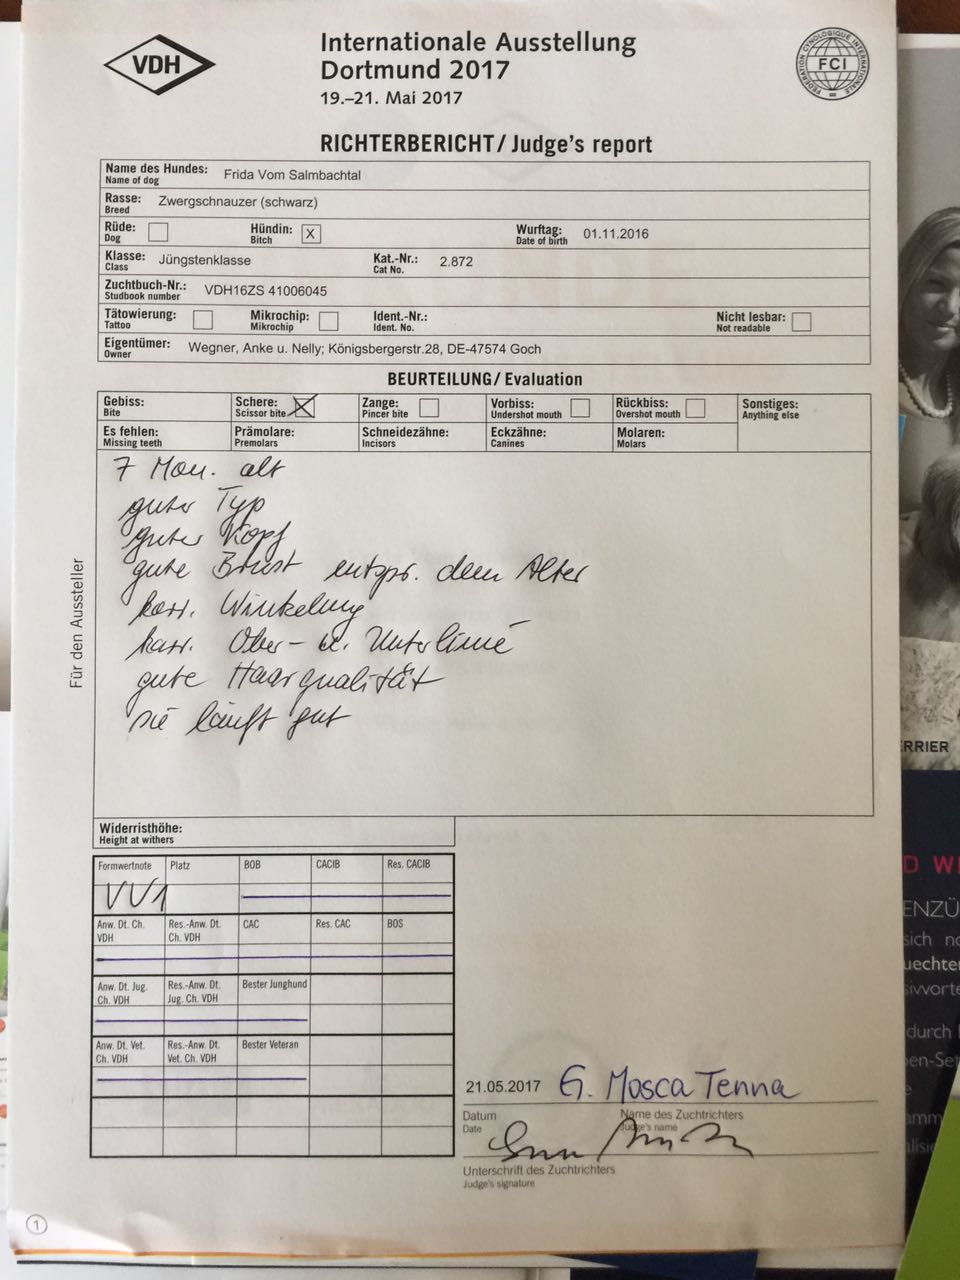 VDH
Internationale Ausstellung
Dortmund 2017
19.–21. Mai 2017
FEDERATION CYNOLOGIQUE INTERNATIONALE
FCI
RICHTERBERICHT/Judge's report
Name des Hundes: Frida Vom Salmbachtal
Name of dog
Rasse: Zwergschnauzer (schwarz)
Breed
Rüde: Hündin: X Wurftag: 01.11.2016
Dog Bitch Date of birth
Klasse: Jüngstenklasse Kat.-Nr.: 2.872
Class Cat No.
Zuchtbuch-Nr.: VDH16ZS 41006045
Studbook number
Tätowierung: Mikrochip: Ident.-Nr.: Nicht lesbar:
Tattoo Mikrochip Ident. No. Not readable
Eigentümer: Wegner, Anke u. Nelly; Königsbergerstr.28, DE-47574 Goch
Owner
BEURTEILUNG/Evaluation
Gebiss: Schere: X Zange: Vorbiss: Rückbiss: Sonstiges:
Bite Scissor bite Pincer bite Undershot mouth Overshot mouth Anything else
Es fehlen: Prämolare: Schneidezähne: Eckzähne: Molaren:
Missing teeth Premolars Incisors Canines Molars
Für den Aussteller
7 Mon. alt
guter Typ
guter Kopf
gute Brust entspr. dem Alter
korr. Winkelung
korr. Ober- u. Unterlinie
gute Haarqualität
sie läuft gut
Widerristhöhe:
Height at withers
Formwertnote Platz BOB CACIB Res. CACIB
VV1
Anw. Dt. Ch. Res.-Anw. Dt. CAC Res. CAC BOS
VDH Ch. VDH
Anw. Dt. Jug. Res.-Anw. Dt. Bester Junghund
Ch. VDH Jug. Ch. VDH
Anw. Dt. Vet. Res.-Anw. Dt. Bester Veteran
Ch. VDH Vet. Ch. VDH
21.05.2017 G. Mosca Tenna
Datum Name des Zuchtrichters
Date Judge's name
Unterschrift des Zuchtrichters
Judge's signature
1
RRIER
D WI
ENZÜ
sich no
uechter
durch